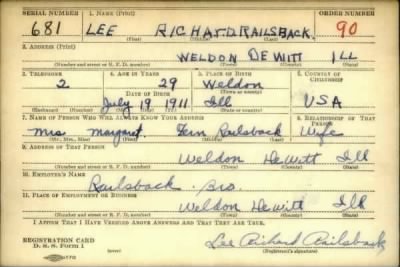 SERIAL NUMBER 1. NAME (Print) ORDER NUMBER
681 LEE RICHARD RAILSBACK 90
(First) (Middle) (Last)
2. ADDRESS (Print)
WELDON DEWITT ILL
(Number and street or R. F. D. number) (Town) (County) (State)
3. TELEPHONE 4. AGE IN YEARS 5. PLACE OF BIRTH 6. COUNTRY OF CITIZENSHIP
2 29 Weldon
DATE OF BIRTH (Town or county)
July 19 1911 Ill USA
(Exchange) (Number) (Mo.) (Day) (Yr.) (State or country)
7. NAME OF PERSON WHO WILL ALWAYS KNOW YOUR ADDRESS 8. RELATIONSHIP OF THAT PERSON
Mrs Margaret Fern Railsback Wife
(Mr., Mrs., Miss) (First) (Middle) (Last)
9. ADDRESS OF THAT PERSON
Weldon DeWitt Ill
(Number and street or R. F. D. number) (Town) (County) (State)
10. EMPLOYER'S NAME
Railsback Bro
11. PLACE OF EMPLOYMENT OR BUSINESS
Weldon DeWitt Ill
(Number and street or R. F. D. number) (Town) (County) (State)
I AFFIRM THAT I HAVE VERIFIED ABOVE ANSWERS AND THAT THEY ARE TRUE.
REGISTRATION CARD
D. S. S. FORM 1 Lee Richard Railsback
(Registrant's signature)